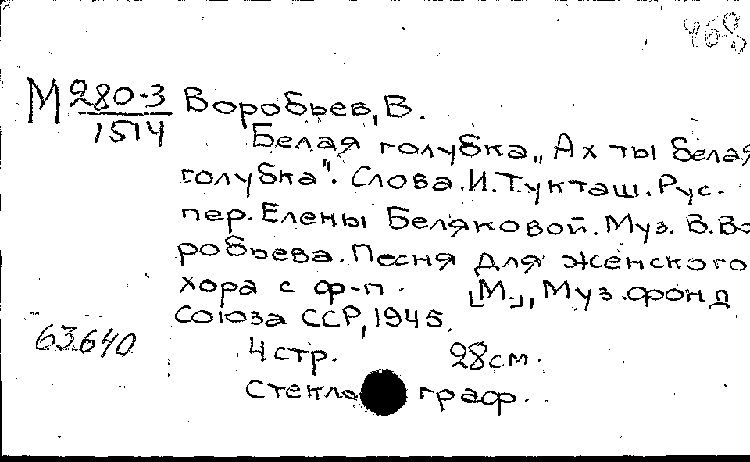 468
М 280-3 / 1514 Воробьев, В.
Белая голубка „Ах ты белая
голубка". Слова И. Тукташ. Рус.
пер. Елены Беляковой. Муз. В. Во
робьева. Песня для женского
хора с ф-п. [М.], Муз. фонд
Союза ССР, 1945.
63.640
4 стр. 28 см.
Стекло граф.